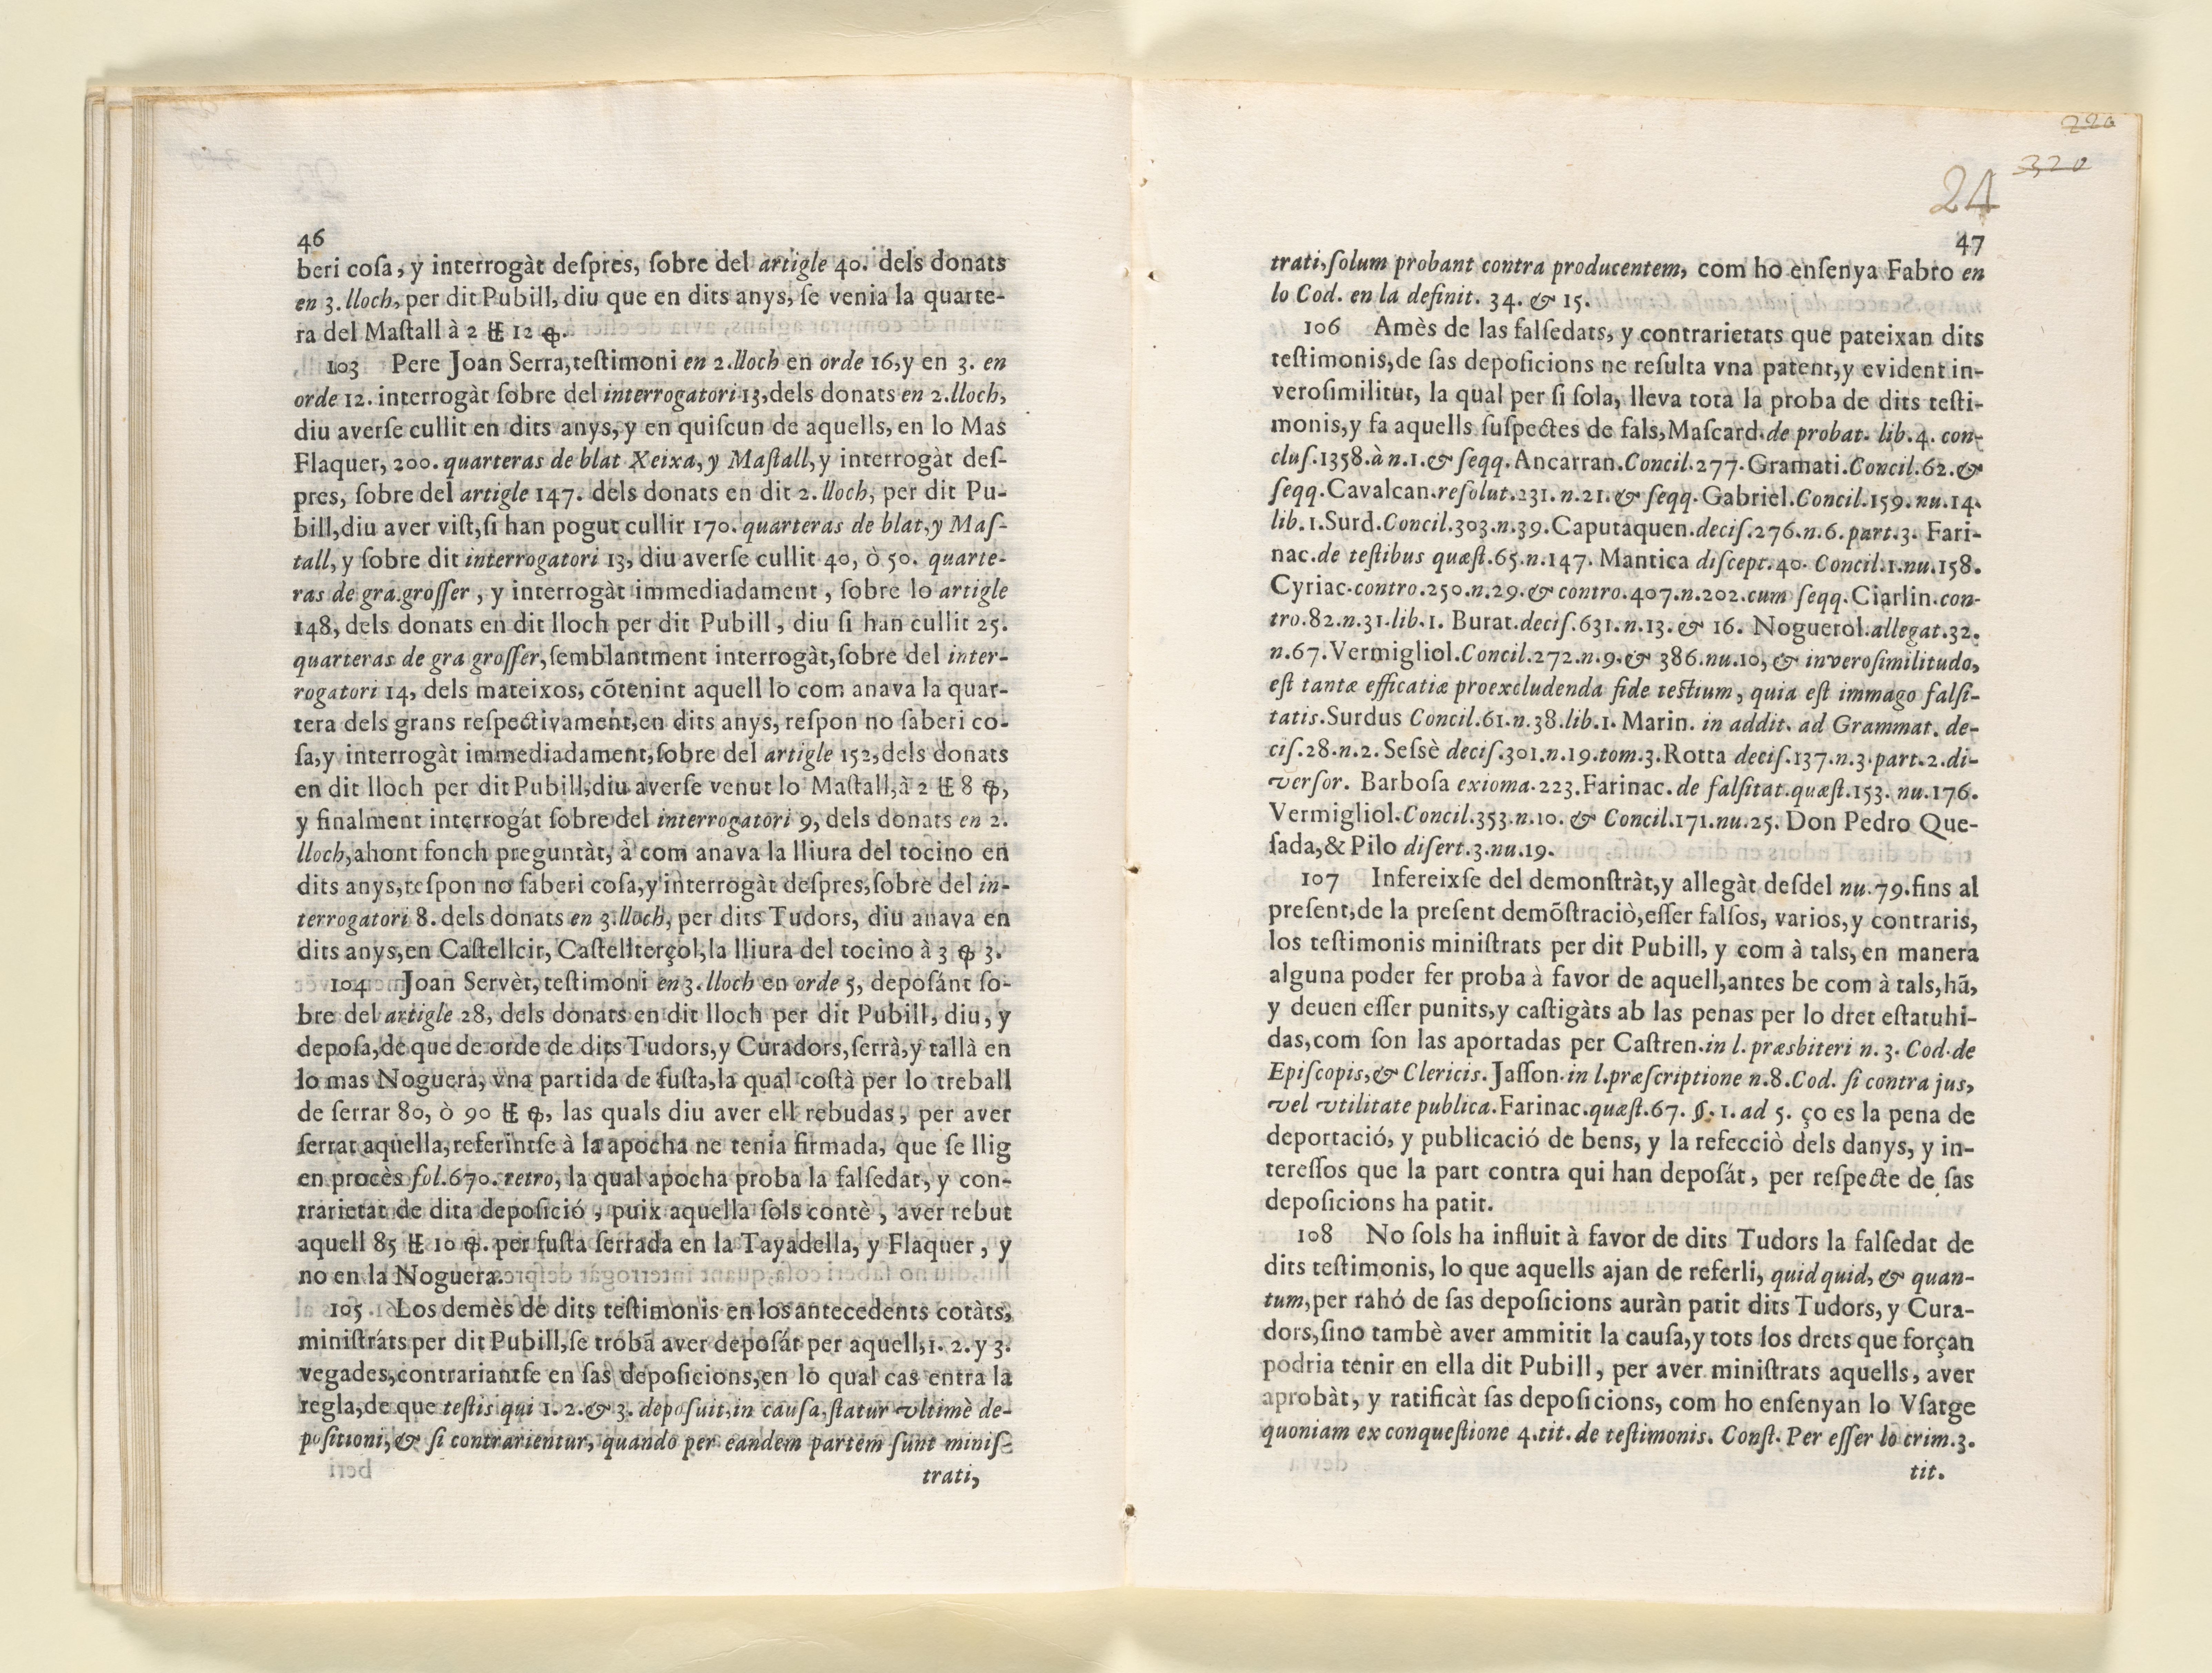 46
beri coſa, y interrogàt deſpres, ſobre del artigle 40. dels donats
en 3. lloch, per dit Pubill, diu que en dits anys, ſe venia la quarte-
ra del Maſtall à 2 12
103 Pere Joan Serra, teſtimoni en 2. lloch en orde 16, y en 3. en
orde 12. interrogàt ſobre del interrogatori 13, dels donats en 2. lloch,
diu averſe cullit en dits anys, y en quiſcun de aquells, en lo Mas
Flaquer, 200. quarteras de blat Xeixa, y Maſtall, y interrogàt deſ-
pres, ſobre del artigle 147. dels donats en dit 2. lloch, per dit Pu-
bill, diu aver viſt, ſi han pogut cullir 170. quarteras de blat, y Maſ-
tall, y ſobre dit interrogatori 13, diu averſe cullit 40, ò 50. quarte-
ras de gra groſſer, y interrogàt immediadament, ſobre lo artigle
148, dels donats en dit lloch per dit Pubill, diu ſi han cullit 25.
quarteras de gra groſſer, ſemblantment interrogàt, ſobre del inter-
rogatori 14, dels mateixos, cõtenint aquell lo com anava la quar-
tera dels grans reſpectivament, en dits anys, reſpon no ſaberi co-
ſa, y interrogàt immediadament, ſobre del artigle 152, dels donats
en dit lloch per dit Pubill, diu averſe venut lo Maſtall, à 2 8
y finalment interrogát ſobre del interrogatori 9, dels donats en 2.
lloch, ahont fonch preguntàt, à com anava la lliura del tocino en
dits anys, reſpon no ſaberi coſa, y interrogàt deſpres, ſobre del in-
terrogatori 8. dels donats en 3. lloch, per dits Tudors, diu anava en
dits anys, en Caſtellcir, Caſtellterçol, la lliura del tocino à 3 3.
104 Joan Servèt, teſtimoni en 3. lloch en orde 5, depoſánt ſo-
bre del artigle 28, dels donats en dit lloch per dit Pubill, diu, y
depoſa, de que de orde de dits Tudors, y Curadors, ſerrà, y tallà en
lo mas Noguera, vna partida de fuſta, la qual coſtà per lo treball
de ſerrar 80, ò 90 las quals diu aver ell rebudas, per aver
ſerrat aquella, referintſe à la apocha ne tenia firmada, que ſe llig
en procès fol. 670. retro, la qual apocha proba la falſedat, y con-
trarietat de dita depoſició, puix aquella ſols contè, aver rebut
aquell 85 10 per fuſta ſerrada en la Tayadella, y Flaquer, y
no en la Noguera.
105 Los demès de dits teſtimonis en los antecedents cotàts,
miniſtráts per dit Pubill, ſe trobã aver depoſát per aquell, 1. 2. y 3.
vegades, contrariantſe en ſas depoſicions, en lo qual cas entra la
regla, de que teſtis qui 1. 2. & 3. depoſuit, in cauſa, ſtatur vltimè de-
poſitioni, & ſi contrarientur, quando per eandem partem ſunt miniſ-
trati,
220
320
24
47
trati, ſolum probant contra producentem, com ho enſenya Fabro en
lo Cod. en la definit. 34. & 15.
106 Amès de las falſedats, y contrarietats que pateixan dits
teſtimonis, de ſas depoſicions ne reſulta vna patent, y evident in-
veroſimilitut, la qual per ſi ſola, lleva tota la proba de dits teſti-
monis, y fa aquells ſuſpectes de fals, Maſcard. de probat. lib. 4. con-
cluſ. 1358. à n. 1. & ſeqq. Ancarran. Concil. 277. Gramati. Concil. 62. &
ſeqq. Cavalcan. reſolut. 231. n. 21. & ſeqq. Gabriel. Concil. 159. nu. 14.
lib. 1. Surd. Concil. 303. n. 39. Caputaquen. deciſ. 276. n. 6. part. 3. Fari-
nac. de teſtibus quæſt. 65. n. 147. Mantica diſcept. 40. Concil. 1. nu. 158.
Cyriac. contro. 250. n. 29. & contro. 407. n. 202. cum ſeqq. Ciarlin. con-
tro. 82. n. 31. lib. 1. Burat. deciſ. 631. n. 13. & 16. Noguerol. allegat. 32.
n. 67. Vermigliol. Concil. 272. n. 9. & 386. nu. 10, & inveroſimilitudo,
eſt tantæ efficatiæ proexcludenda fide teſtium, quia eſt immago falſi-
tatis. Surdus Concil. 61. n. 38. lib. 1. Marin. in addit. ad Grammat. de-
ciſ. 28. n. 2. Seſsè deciſ. 301. n. 19. tom. 3. Rotta deciſ. 137. n. 3. part. 2. di-
verſor. Barboſa exioma. 223. Farinac. de falſitat. quæſt. 153. nu. 176.
Vermigliol. Concil. 353. n. 10. & Concil. 171. nu. 25. Don Pedro Que-
ſada, & Pilo diſert. 3. nu. 19.
107 Infereixſe del demonſtràt, y allegàt deſdel nu. 79. fins al
preſent, de la preſent demõſtraciò, eſſer falſos, varios, y contraris,
los teſtimonis miniſtrats per dit Pubill, y com à tals, en manera
alguna poder fer proba à favor de aquell, antes be com à tals, hã,
y deuen eſſer punits, y caſtigàts ab las penas per lo dret eſtatuhi-
das, com ſon las aportadas per Caſtren. in l. præsbiteri n. 3. Cod. de
Epiſcopis, & Clericis. Jaſſon. in l. præſcriptione n. 8. Cod. ſi contra jus,
vel vtilitate publica. Farinac. quæſt. 67. §. 1. ad 5. ço es la pena de
deportació, y publicació de bens, y la refecciò dels danys, y in-
tereſſos que la part contra qui han depoſát, per reſpecte de ſas
depoſicions ha patit.
108 No ſols ha influit à favor de dits Tudors la falſedat de
dits teſtimonis, lo que aquells ajan de referli, quid quid, & quan-
tum, per rahó de ſas depoſicions auràn patit dits Tudors, y Cura-
dors, ſino tambè aver ammitit la cauſa, y tots los drets que forçan
podria tenir en ella dit Pubill, per aver miniſtrats aquells, aver
aprobàt, y ratificàt ſas depoſicions, com ho enſenyan lo Vſatge
quoniam ex conqueſtione 4. tit. de teſtimonis. Conſt. Per eſſer lo crim. 3.
tit.